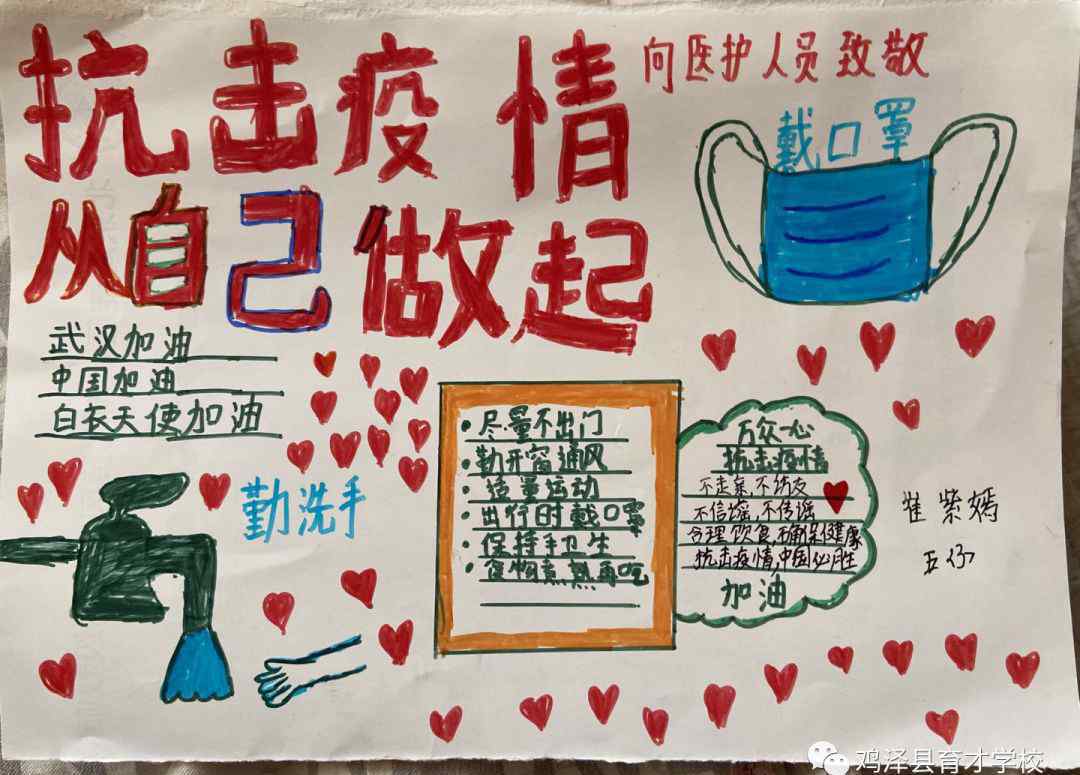 抗击疫情
向医护人员致敬
从自己做起
戴口罩
武汉加油
中国加油
白衣天使加油
勤洗手
尽量不出门
勤开窗通风
适量运动
出行时戴口罩
保持手卫生
食物煮熟再吃
万众一心
抗击疫情
不走亲,不访友
不信谣,不传谣
合理饮食,确保健康
抗击疫情,中国必胜
加油
崔紫嫣
鸡泽县育才学校